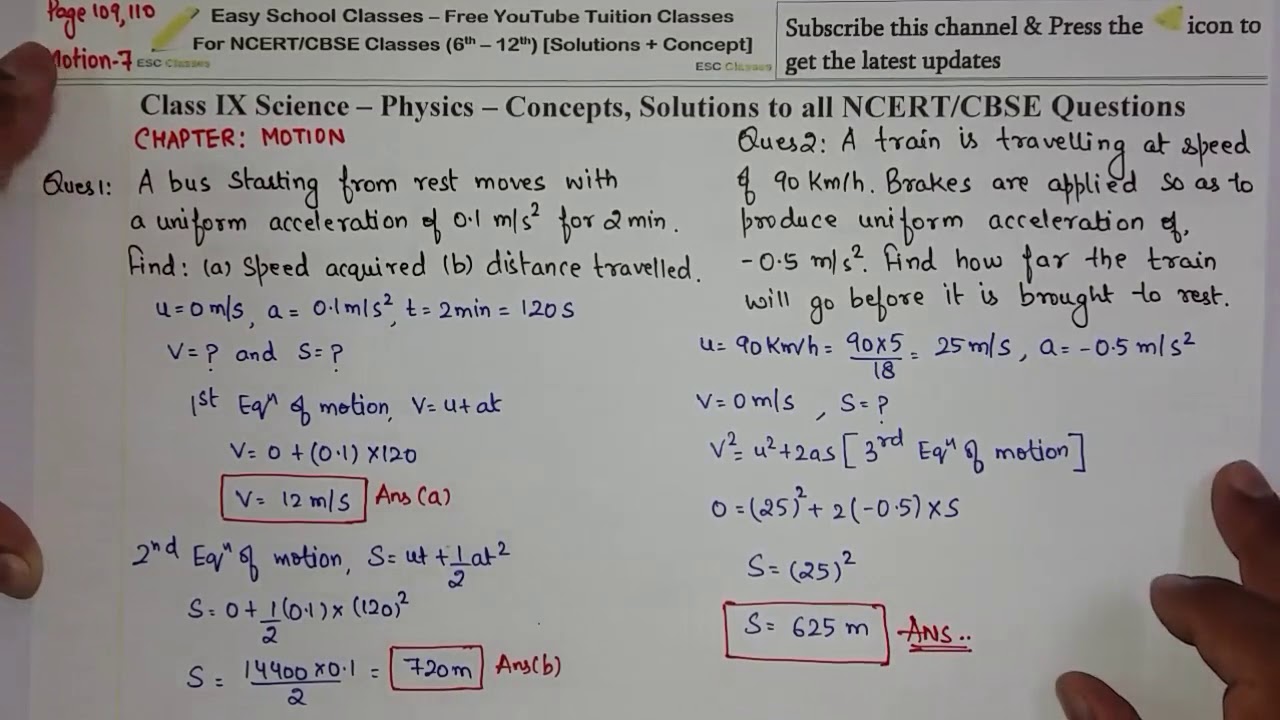 Page 109,110
Motion-7
Easy School Classes – Free YouTube Tuition Classes
For NCERT/CBSE Classes (6th – 12th) [Solutions + Concept]
ESC Classes
ESC Classes
Subscribe this channel & Press the icon to
get the latest updates
Class IX Science – Physics – Concepts, Solutions to all NCERT/CBSE Questions
CHAPTER: MOTION
Ques1: A bus starting from rest moves with
a uniform acceleration of 0.1 m/s² for 2 min.
Find: (a) Speed acquired (b) distance travelled.
u = 0 m/s, a = 0.1 m/s², t = 2 min = 120 s
V = ? and S = ?
1st Eqn of motion, V = u + at
V = 0 + (0.1) × 120
V = 12 m/s Ans (a)
2nd Eqn of motion, S = ut + 1/2 at²
S = 0 + 1/2 (0.1) × (120)²
S = 14400 × 0.1 / 2 = 720 m Ans (b)
Ques2: A train is travelling at speed
of 90 Km/h. Brakes are applied so as to
produce uniform acceleration of,
-0.5 m/s². Find how far the train
will go before it is brought to rest.
u = 90 Km/h = 90×5/18 = 25 m/s, a = -0.5 m/s²
V = 0 m/s, S = ?
V² = u² + 2as [3rd Eqn of motion]
0 = (25)² + 2(-0.5) × S
S = (25)²
S = 625 m ANS..